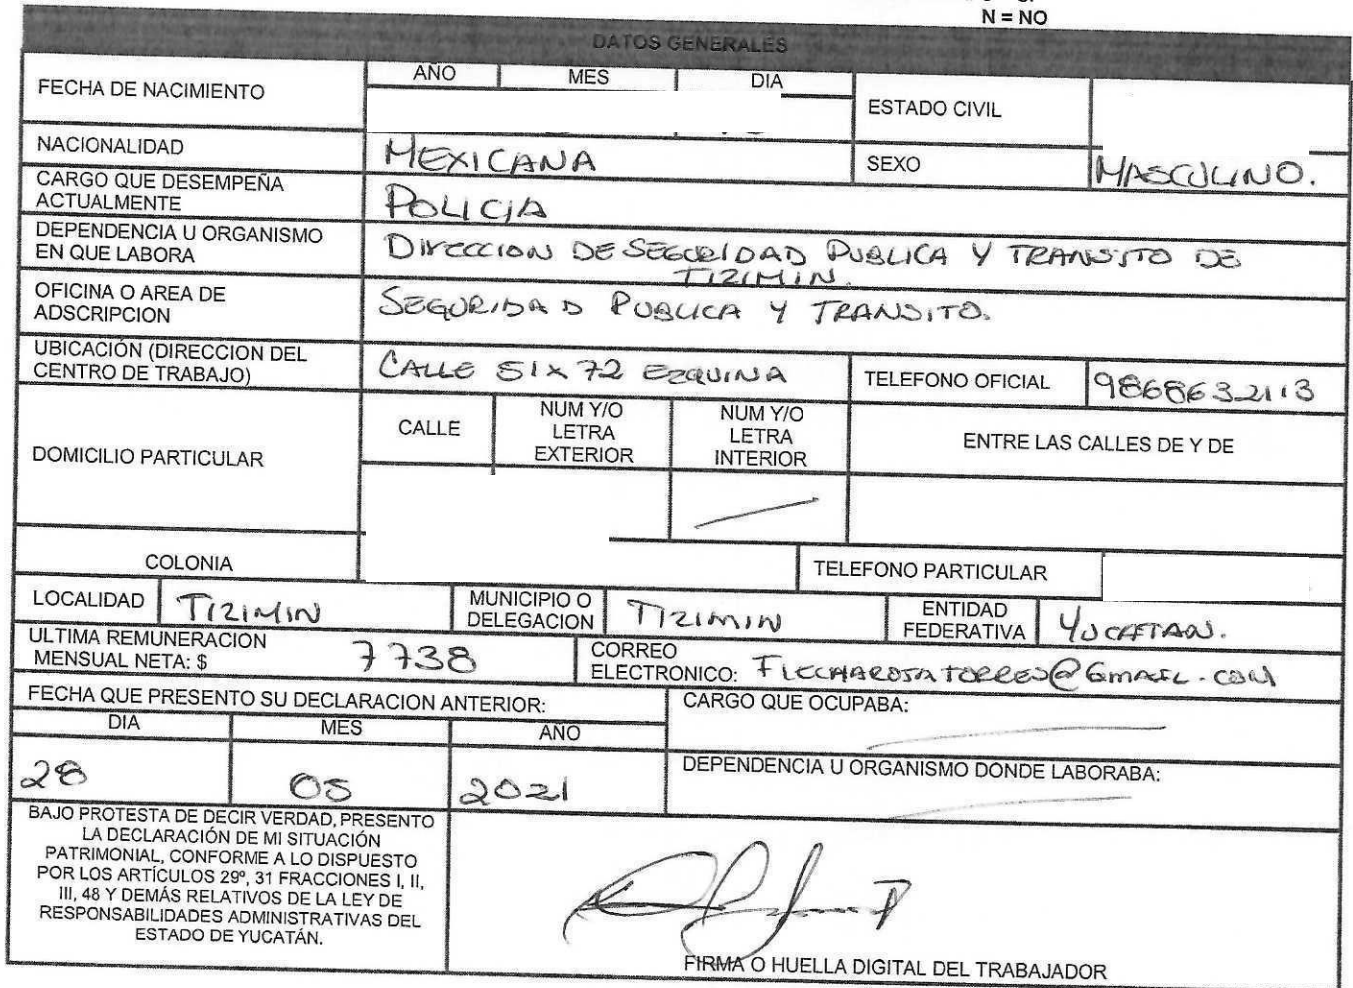 N = NO
DATOS GENERALES
FECHA DE NACIMIENTO
AÑO MES DIA
ESTADO CIVIL
NACIONALIDAD MEXICANA SEXO MASCULINO.
CARGO QUE DESEMPEÑA
ACTUALMENTE
POLICIA
DEPENDENCIA U ORGANISMO
EN QUE LABORA
DIRECCION DE SEGURIDAD PUBLICA Y TRANSITO DE
TIZIMIN.
OFICINA O AREA DE
ADSCRIPCION
SEGURIDAD PUBLICA Y TRANSITO.
UBICACIÓN (DIRECCION DEL
CENTRO DE TRABAJO)
CALLE 51 x 72 EZQUINA
TELEFONO OFICIAL 9868632113
DOMICILIO PARTICULAR
CALLE
NUM Y/O
LETRA
EXTERIOR
NUM Y/O
LETRA
INTERIOR
ENTRE LAS CALLES DE Y DE
COLONIA
TELEFONO PARTICULAR
LOCALIDAD TIZIMIN
MUNICIPIO O
DELEGACION
TIZIMIN
ENTIDAD
FEDERATIVA
YUCATAN.
ULTIMA REMUNERACION
MENSUAL NETA: $
7738
CORREO
ELECTRONICO:
FECHA QUE PRESENTO SU DECLARACION ANTERIOR:
DIA MES AÑO
28 05 2021
CARGO QUE OCUPABA:
DEPENDENCIA U ORGANISMO DONDE LABORABA:
BAJO PROTESTA DE DECIR VERDAD, PRESENTO
LA DECLARACIÓN DE MI SITUACIÓN
PATRIMONIAL, CONFORME A LO DISPUESTO
POR LOS ARTÍCULOS 29º, 31 FRACCIONES I, II,
III, 48 Y DEMÁS RELATIVOS DE LA LEY DE
RESPONSABILIDADES ADMINISTRATIVAS DEL
ESTADO DE YUCATÁN.
FIRMA O HUELLA DIGITAL DEL TRABAJADOR